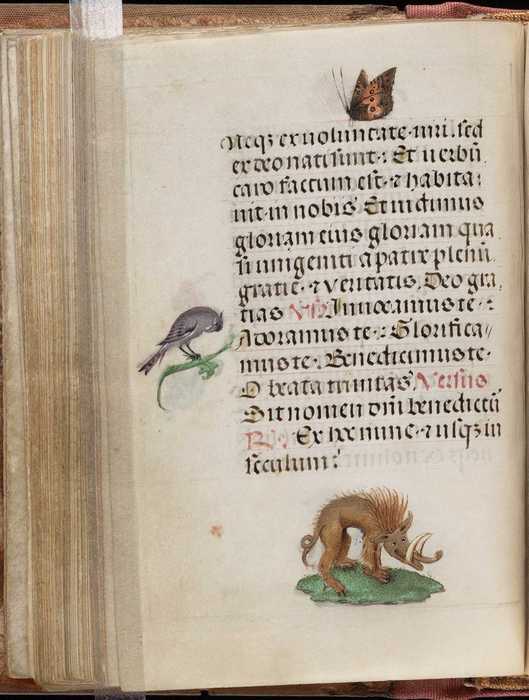 Neq; ex voluntate viri. sed
ex deo nati sunt. Et verbū
caro factum est. ⁊ habita
uit in nobis Et vidimus
gloriam eius gloriam qua
si unigeniti a patre plenū
gratie. ⁊ veritatis. Deo gra
tias Vs. Inuocamus te.
Adoramus te. Glorifica
mus te. Benedicimus te.
O beata trinitas Versus
Sit nomen dñi benedictū
R. Ex hoc nunc. ⁊ usq; in
seculum.